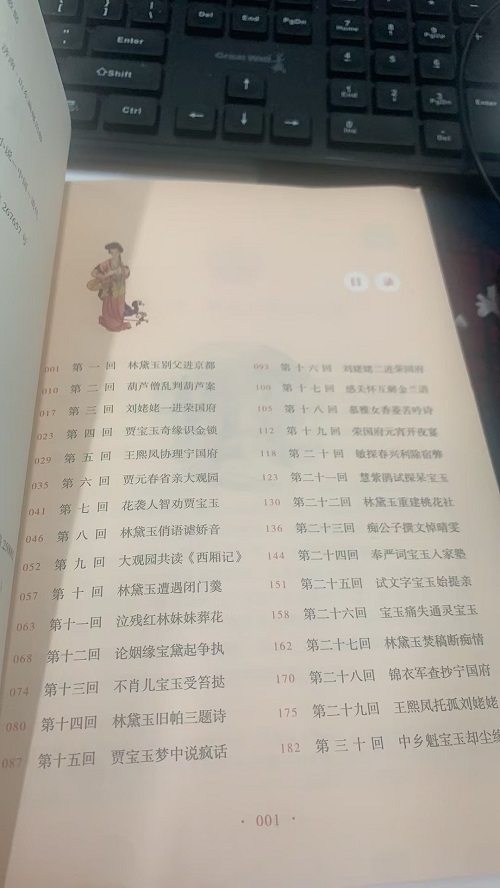 Enter
Shift
Ctrl
Del
End
PgDn
Enter
目录
001 第一回 林黛玉别父进京都
010 第二回 葫芦僧乱判葫芦案
017 第三回 刘姥姥一进荣国府
023 第四回 贾宝玉奇缘识金锁
029 第五回 王熙凤协理宁国府
035 第六回 贾元春省亲大观园
041 第七回 花袭人智劝贾宝玉
046 第八回 林黛玉俏语谑娇音
052 第九回 大观园共读《西厢记》
057 第十回 林黛玉遭遇闭门羹
063 第十一回 泣残红林妹妹葬花
068 第十二回 论姻缘宝黛起争执
074 第十三回 不肖儿宝玉受笞挞
080 第十四回 林黛玉旧帕三题诗
087 第十五回 贾宝玉梦中说疯话
093 第十六回 刘姥姥二进荣国府
100 第十七回 感关怀互解金兰语
105 第十八回 慕雅女香菱苦吟诗
112 第十九回 荣国府元宵开夜宴
118 第二十回 敏探春兴利除宿弊
123 第二十一回 慧紫鹃试探呆宝玉
130 第二十二回 林黛玉重建桃花社
136 第二十三回 痴公子撰文悼晴雯
144 第二十四回 奉严词宝玉入家塾
151 第二十五回 试文字宝玉始提亲
158 第二十六回 宝玉痛失通灵宝玉
162 第二十七回 林黛玉焚稿断痴情
170 第二十八回 锦衣军查抄宁国府
175 第二十九回 王熙凤托孤刘姥姥
182 第三十回 中乡魁宝玉却尘缘
· 001 ·